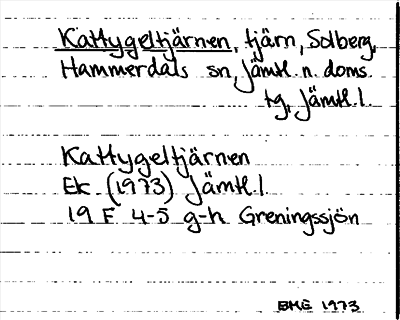 Kattygeltjärnen, tjärn, Solberg,
Hammerdals sn, Jämtl. n. doms.
tg, Jämtl. l.
Kattygeltjärnen
Ek (1973) Jämtl. l.
19 F 4-5 g-h Greningssjön
BME 1973